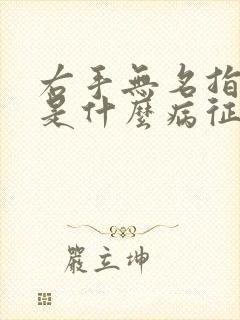 右手無名指
是什麼病征
嚴立坤